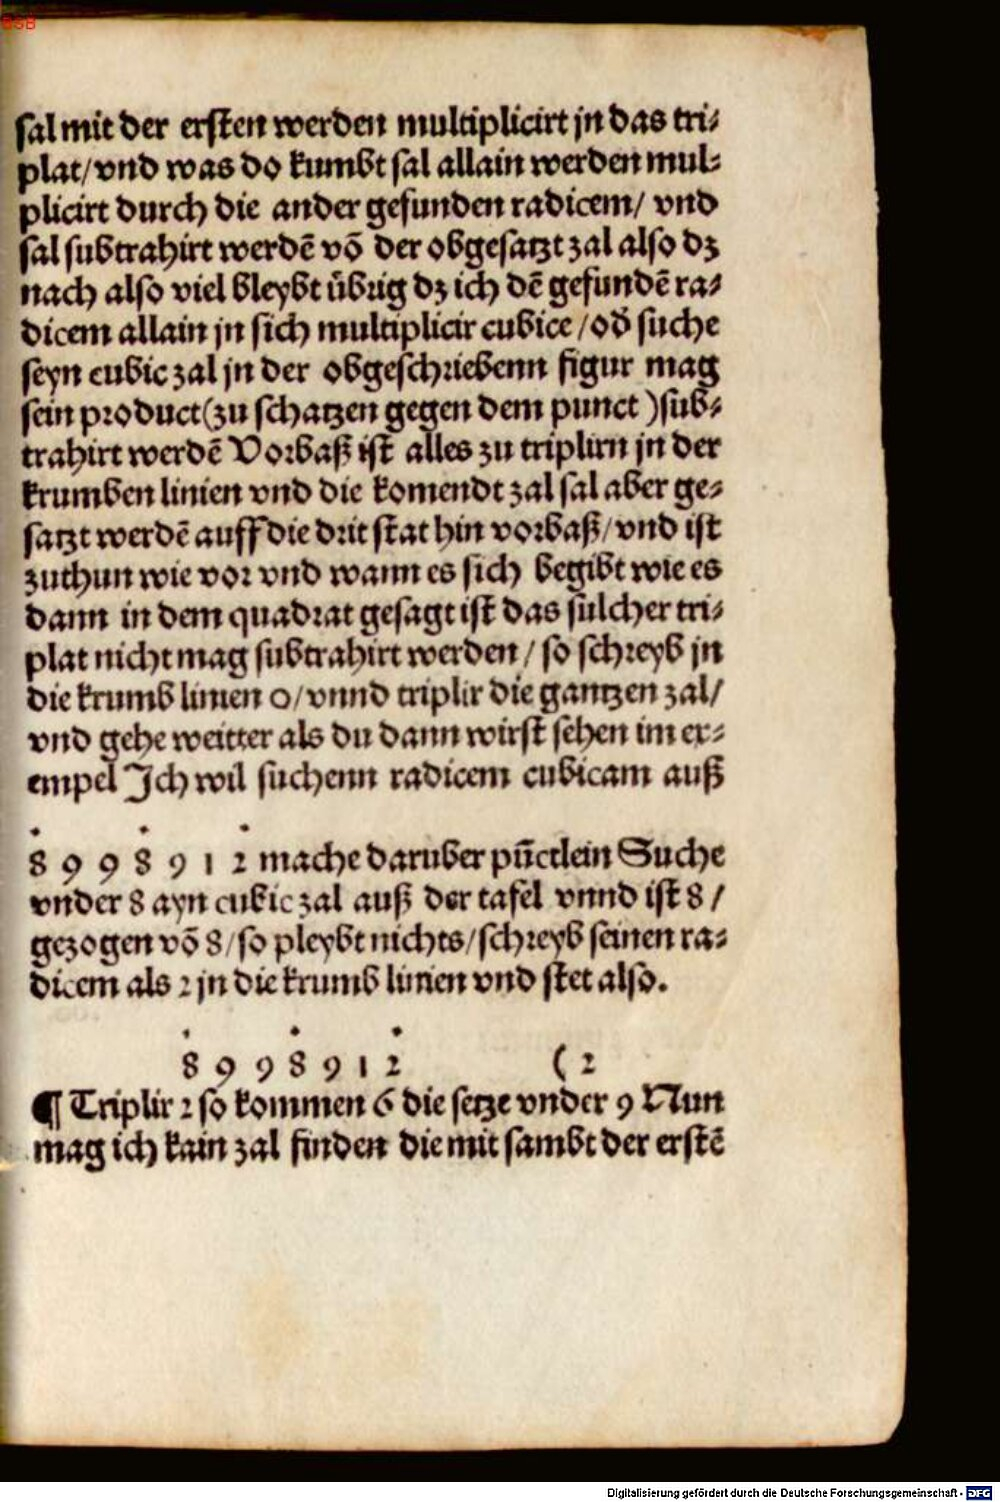 BSB
sal mit der ersten werden multiplicirt jn das tri⸗
plat/ vnd was do kumbt sal allain werden mul⸗
plicirt durch die ander gefunden radicem/ vnd
sal subtrahirt werdē vō der obgesatzt zal also dz
nach also viel bleybt übrig dz ich dē gefundē ra⸗
dicem allain jn sich multiplicir cubice/ od̕ suche
seyn cubic zal jn der obgeschriebenn figur mag
sein product (zu schatzen gegen dem punct) sub⸗
trahirt werdē Vorbaß ist alles zu triplirn jn der
krumben linien vnd die komendt zal sal aber ge⸗
satzt werdē auff die drit stat hin vorbaß/ vnd ist
zuthun wie vor vnd wann es sich begibt wie es
dann in dem quadrat gesagt ist das sulcher tri⸗
plat nicht mag subtrahirt werden/ so schreyb jn
die krumb linien 0/ vnnd triplir die gantzen zal/
vnd gehe weitter als du dann wirst sehen im ex⸗
empel Jch wil suchenn radicem cubicam auß
8 9 9 8 9 1 2 mache daruber pūctlein Suche
vnder 8 ayn cubic zal auß der tafel vnnd ist 8/
gezogen vō 8/ so pleybt nichts/ schreyb seinen ra⸗
dicem als 2 jn die krumb linien vnd stet also.
8 9 9 8 9 1 2 ( 2
¶ Triplir 2 so kommen 6 die setze vnder 9 Nun
mag ich kain zal finden die mit sambt der erstē
Digitalisierung gefördert durch die Deutsche Forschungsgemeinschaft - DFG